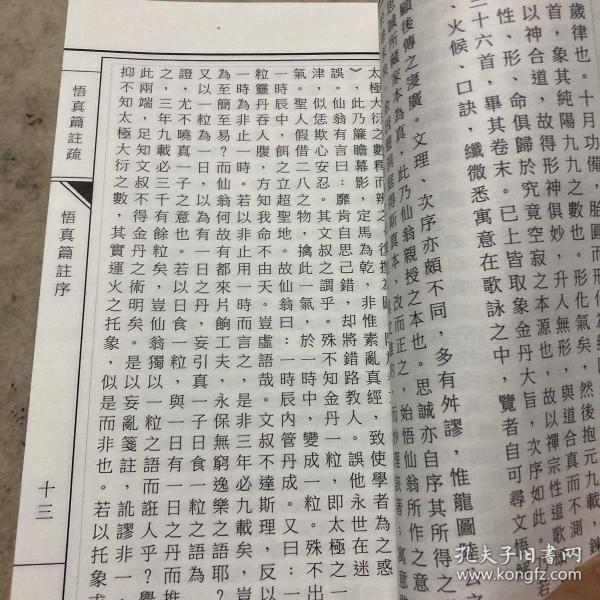 歲律也。十月功備，胎圓而形化
首，象其純陽九九之數也。形化氣矣，然後抱元九載，鍊
以神合道，故得形神俱妙，升入無形，與道合真而不測
性、形、命俱歸於究竟空寂之本源也，故以禪宗性道歌
三十六首，畢其卷末。已上皆取象金丹大旨，次序如此。
、火候、口訣，纖微悉寓意在歌詠之中，覽者自可尋文悟解
顧後傳之寖廣。文理、次序亦頗不同，多有舛謬，惟龍圖
思誠所藏家本為真，此乃仙翁親授之本也。思誠亦自序其所得之
得斯真本，故而正之，始悟仙翁所作之意
太極大衍之數釋而辨之
》，此乃簾瞻幕影，定馬為乾，非惟紊亂真經，致使學者為之惑
誤。仙翁有言曰：靡肯自思己錯，却將錯路教人。誤他永世在迷
津，似恁欺心安忍。其文叔之謂乎。殊不知金丹一粒，即太極之一
氣。聖人假借二八之物，擒此一氣，於一時中，變成一粒。殊不出
一時辰中，餌之立超聖地。故仙翁曰：一時辰內管丹成。又曰：一
粒靈丹吞入腹，方知我命不由天。豈虛語哉。文叔不達斯理，反以
一時為非止一時。若以非止用一時而言之，是非三年必九載矣，豈
為至簡至易？而仙翁何故有都來片餉工夫，永保無窮逸樂之語耶？
又以一粒為一日，以為有一日之丹，妄引真一子日食一粒之語為
證，尤不曉真一子之意也。若以日食一粒，與一日有一日之丹而推
之，三年九載必三千有餘粒矣，豈仙翁獨以一粒之語而誑人乎？舉
此兩端，足知文叔不得金丹之術明矣。是以妄亂箋註，訛謬非一，
抑不知太極大衍之數，其實運火之托象，似是而非也。若以托象求
悟真篇註疏
悟真篇註序
十三
孔夫子旧书网
www.kongfz.com